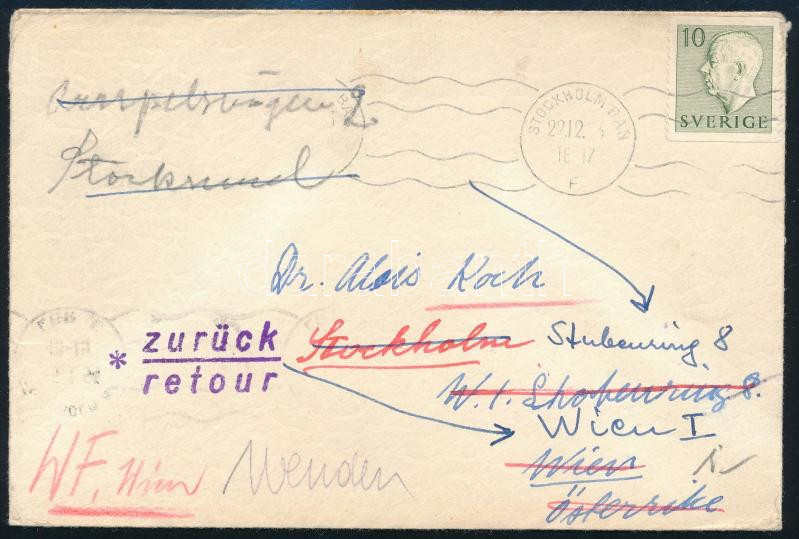 10
SVERIGE
STOCKHOLM BAN
22.12.
16-17
F
Stocksund
Dr. Alois Koch
Stockholm Stubenring 8
* zurück
retour
W. 1.
Wien I
Wien
Österrike
WF, Wien Wenden
darabanth